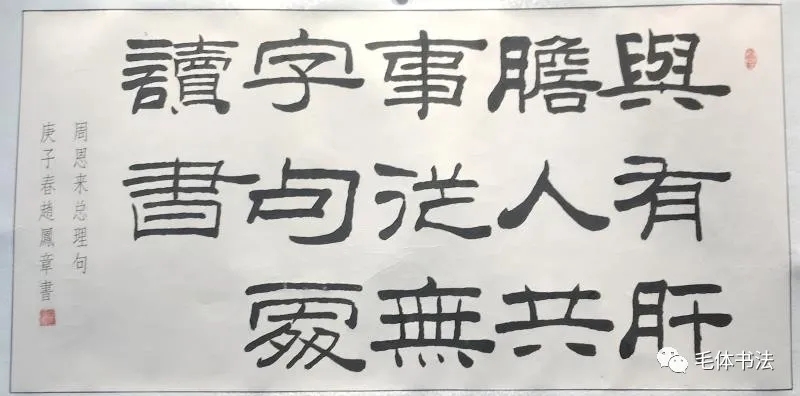 與有肝
膽人共
事從無
字句處
讀書
周恩来总理句
庚子春趙鳳章書
毛体书法